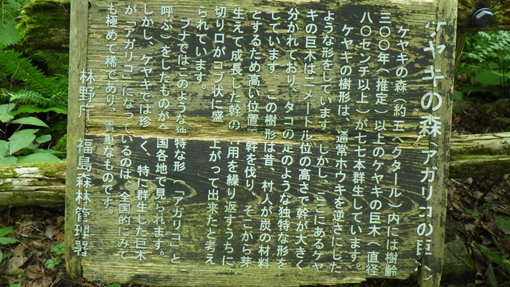 ケヤキの森〈アガリコの巨
ケヤキの森(約五ヘクタール)内には樹齢
三〇〇年(推定)以上のケヤキの巨木(直径
八〇センチ以上)が七十本群生しています。
ケヤキの樹形は、通常ホウキを逆さにした
ような形をしています。しかし、ここにあるケヤ
キの巨木は、二メートル位の高さで幹が大きく
分かれており、タコの足のような独特な形を
しています。この樹形は昔、村人が炭の材料
とするため高い位置で幹を伐り、そこから芽
生えて成長した幹の利用を繰り返すうちに
切り口がコブ状に盛り上がって出来たと考え
られています。
ブナではこのような独特な形(アガリコ)と
呼ぶ)をしたものが全国各地で見られます。
しかし、ケヤキでは珍しく、特に群生した巨木
が「アガリコ」になっているのは、全国的にみて
も極めて稀であり、貴重なものです。
林野庁 福島森林管理署